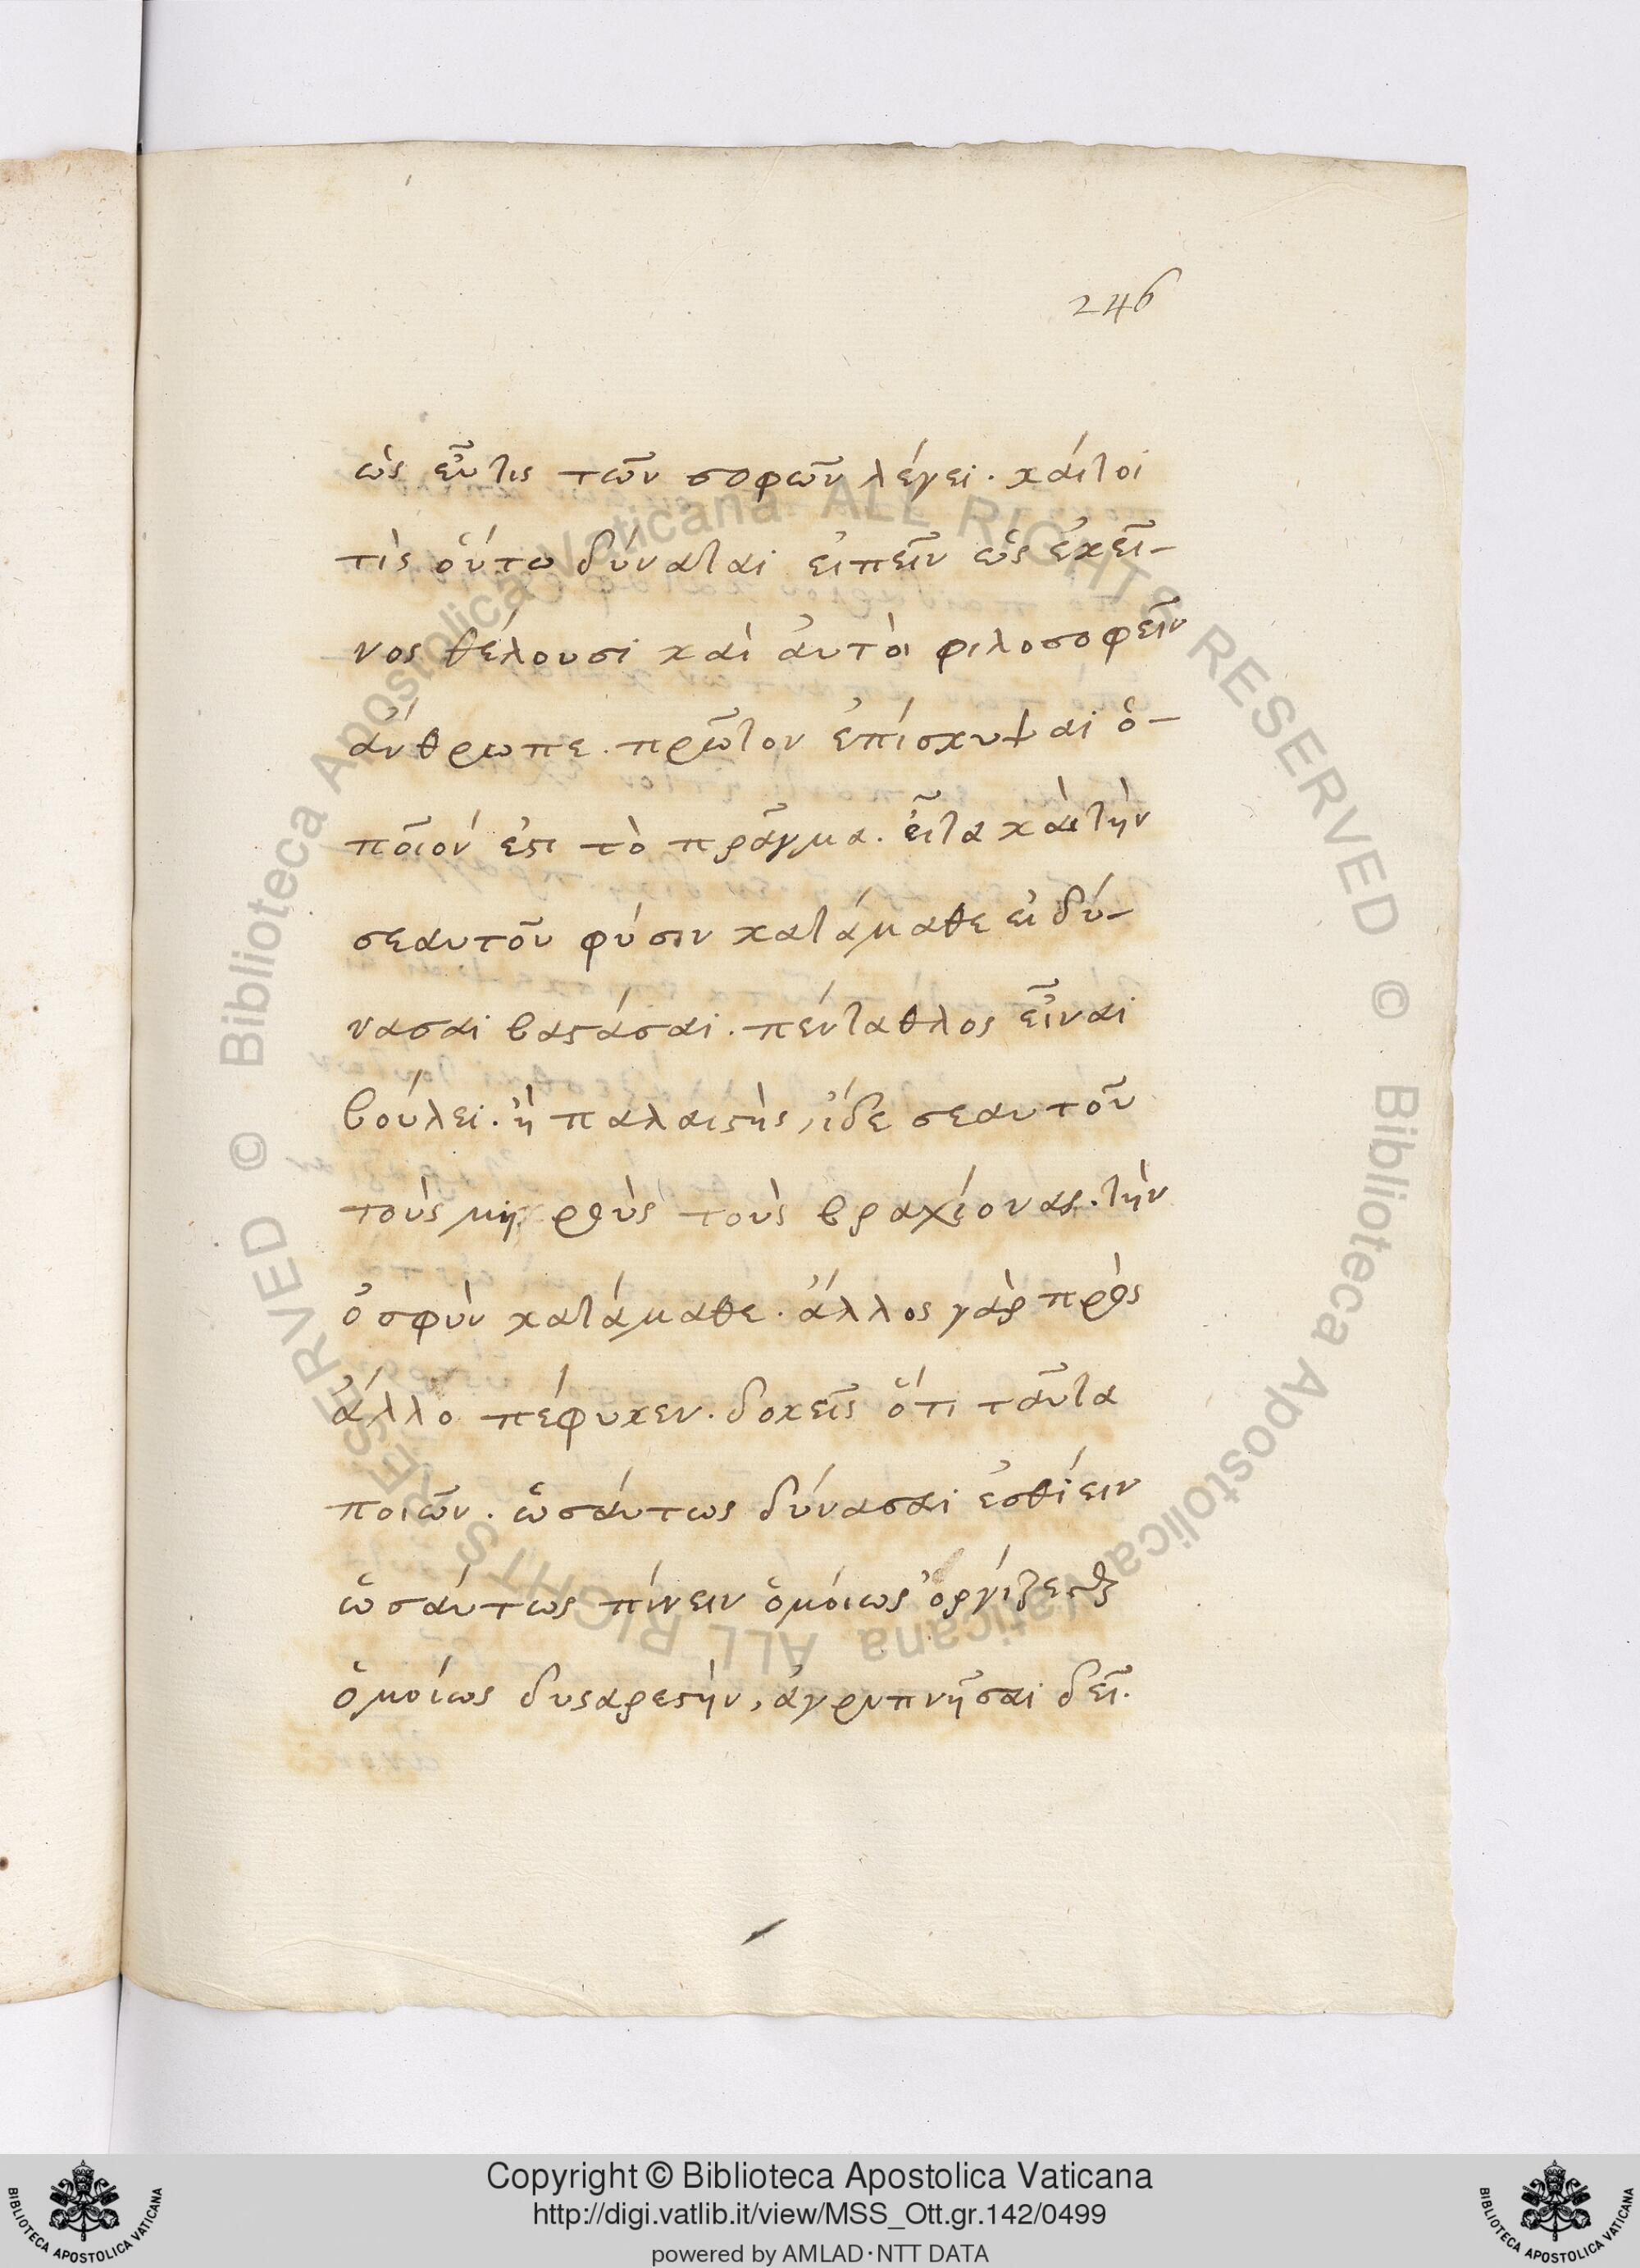 246
ὡς εὖ τις τῶν σοφῶν λέγει. καίτοι
τὶς οὕτω δύναται εἰπεῖν ὡς ἐκεῖ-
νος θέλουσι καὶ ἀυτὸι φιλοσοφεῖν
ἄνθρωπε. πρῶτον ἐπίσκυψαι ὁ-
ποῖον ἐστι τὸ πρᾶγμα. εἶτα καὶ τὴν
σεαυτοῦ φύσιν κατάμαθε εἰ δύ-
νασαι βαστάσαι. πένταθλος εἶναι
βούλει. ἢ παλαιστὴς, ἴδε σεαυτοῦ
τοὺς μηροὺς τοὺς βραχίονας. τὴν
ὀσφὺν κατάμαθε. ἄλλος γὰρ πρὸς
ἄλλο πέφυκεν. δοκεῖς ὅτι ταῦτα
ποιῶν. ὡσάυτως δύνασαι ἐσθίειν
ὡσάυτως πίνειν ὁμοίως ὀργίζεσθαι
ὁμοίως δυσαρεστὴν, ἀγρυπνῆσαι δεῖ.
© Biblioteca Apostolica Vaticana ALL RIGHTS RESERVED © Biblioteca Apostolica Vaticana ALL RIGHTS RESERVED
BIBLIOTECA APOSTOLICA VATICANA
Copyright © Biblioteca Apostolica Vaticana
http://digi.vatlib.it/view/MSS_Ott.gr.142/0499
powered by AMLAD·NTT DATA
BIBLIOTECA APOSTOLICA VATICANA